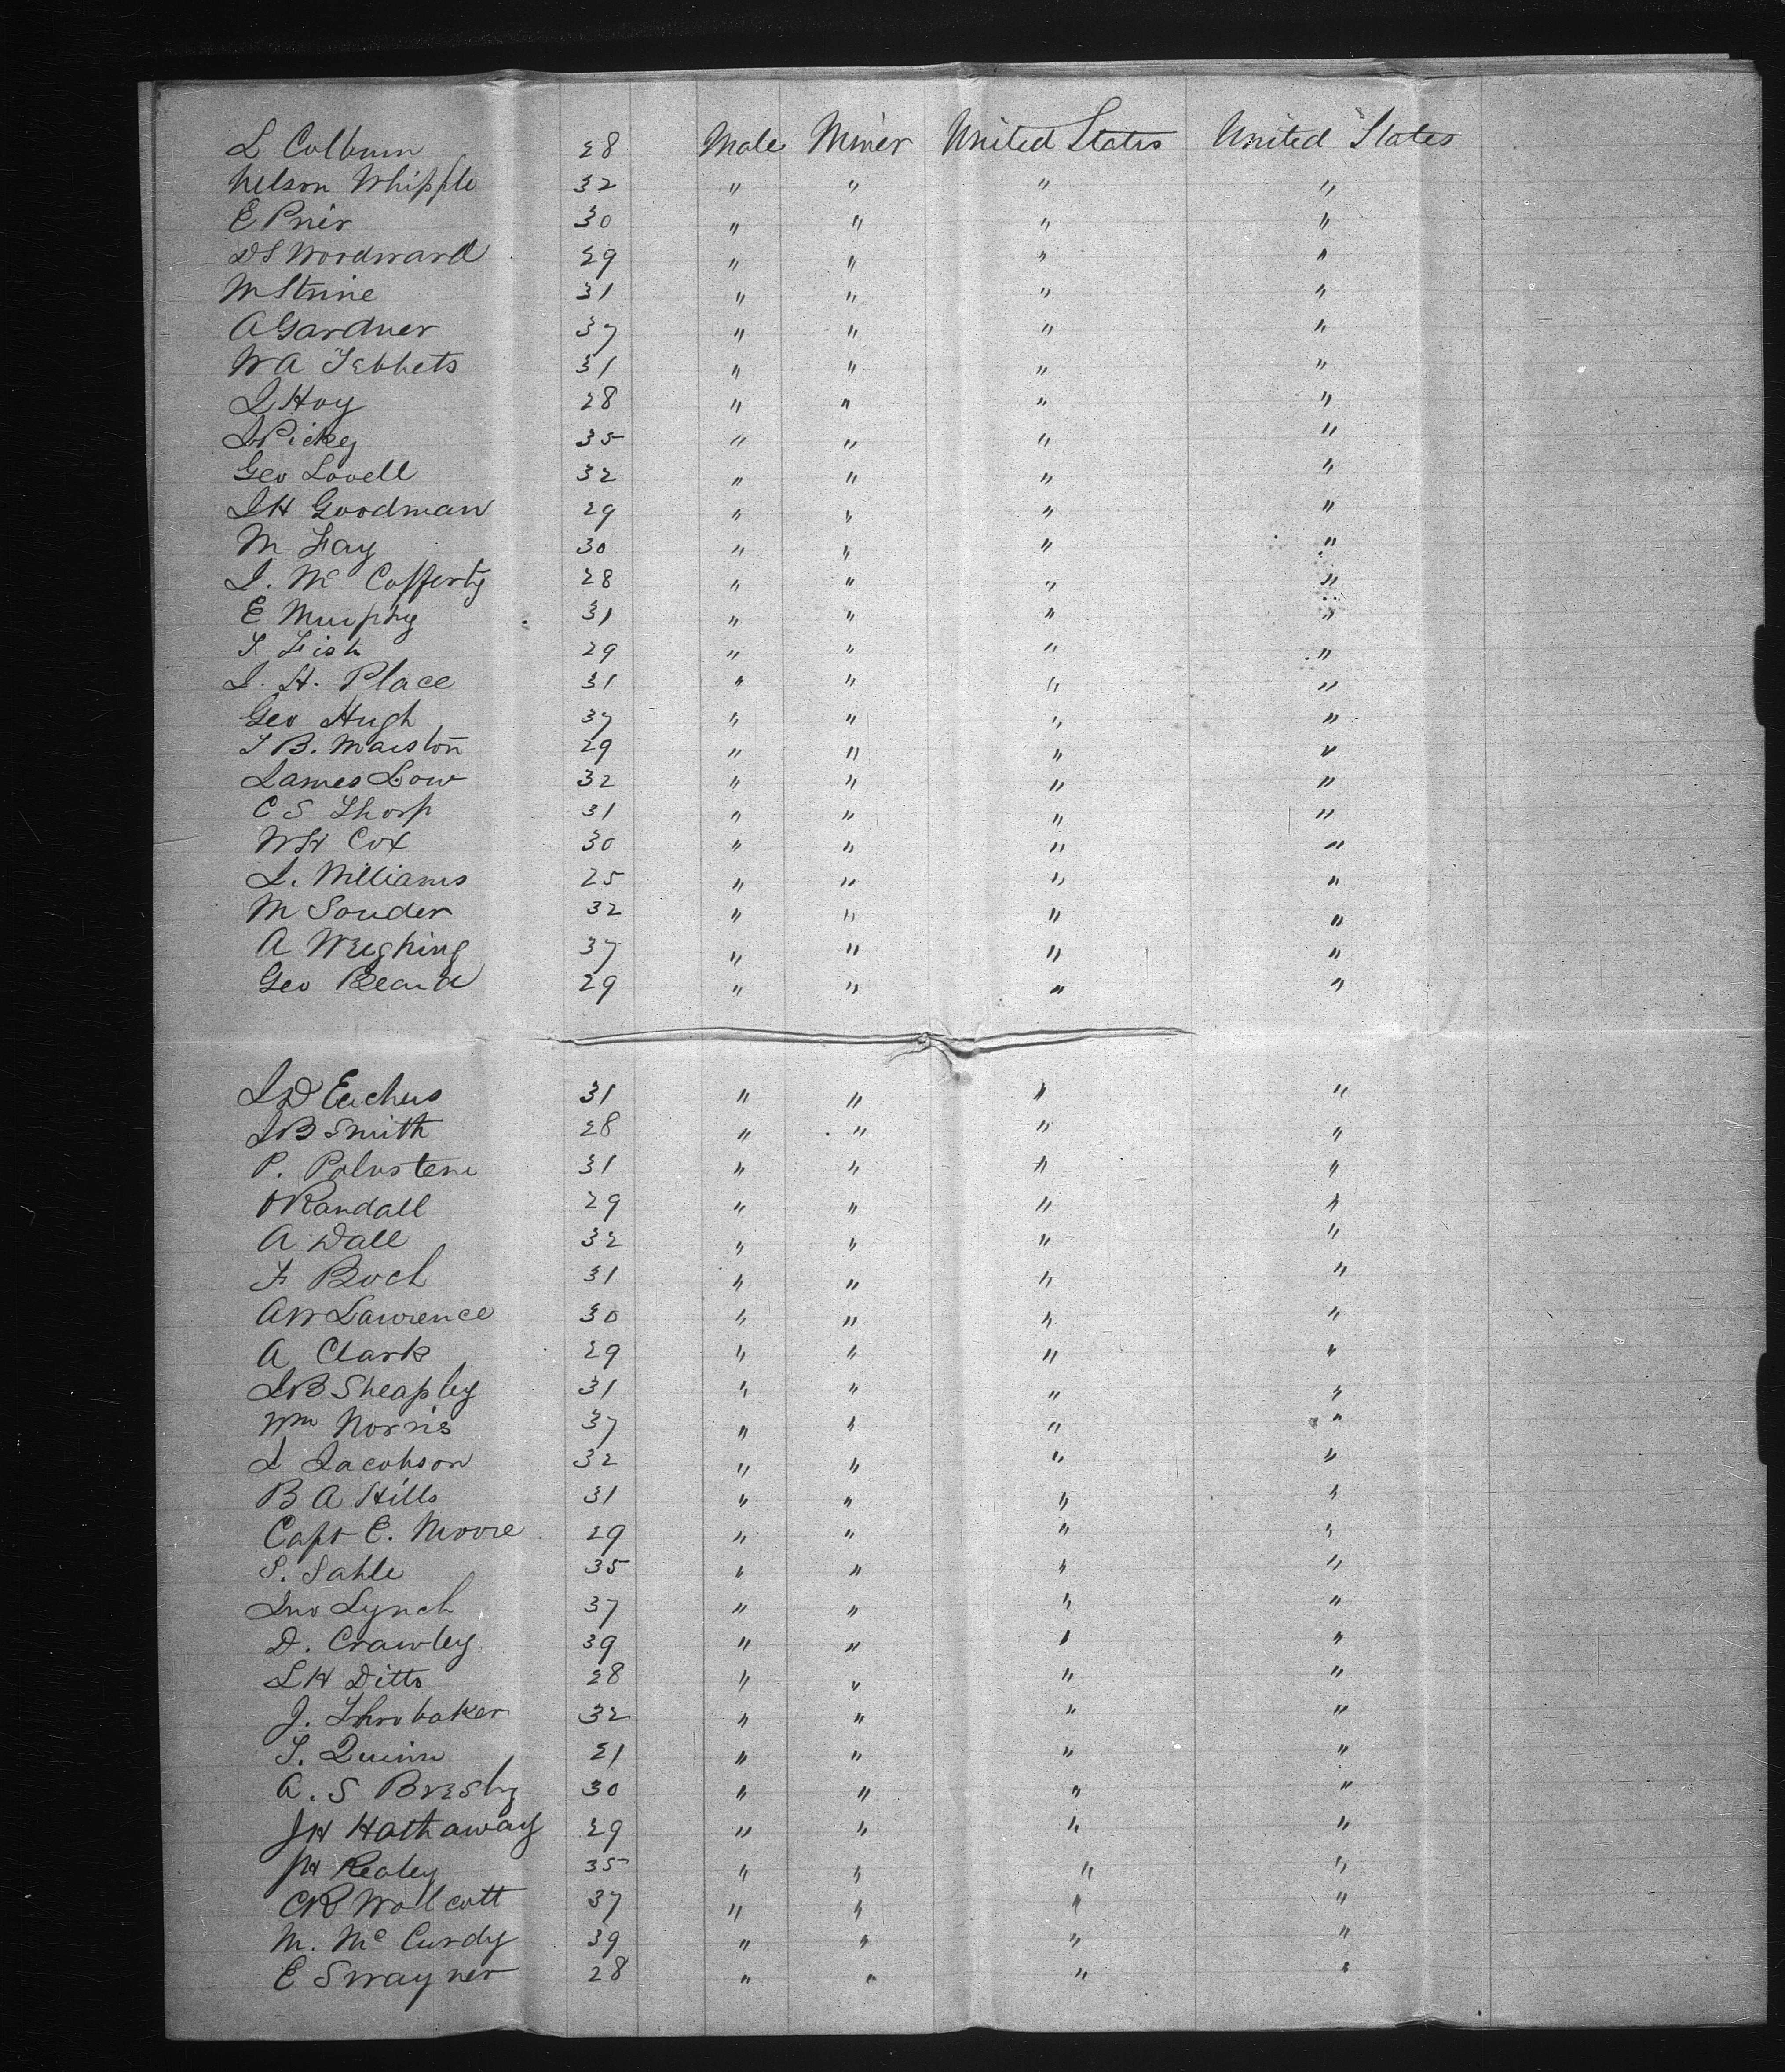 L Colburn 28 Male Miner United States United States
Nelson Whipple 32 " " " "
E Prier 30 " " " "
DS Woodward 29 " " " "
M Strine 31 " " " "
A Gardner 37 " " " "
WA Tebbets 31 " " " "
J Hoy 28 " " " "
J Rickey 35 " " " "
Geo Lovell 32 " " " "
JH Goodman 29 " " " "
M Fay 30 " " " "
J. Mc Cofferty 28 " " " "
E Murphy 31 " " " "
T Fish 29 " " " "
J. H. Place 31 " " " "
Geo Hugh 37 " " " "
T B. Marston 29 " " " "
James Low 32 " " " "
C S Thorp 31 " " " "
WH Cox 30 " " " "
L. Williams 25 " " " "
M Souder 32 " " " "
A Weghing 37 " " " "
Geo Beard 29 " " " "
JD Eachus 31 " " " "
JB Smith 28 " " " "
P. 31 " " " "
Randall 29 " " " "
A Dall 32 " " " "
F Boch 31 " " " "
AW Lawrence 30 " " " "
A Clark 29 " " " "
JB Sheapley 31 " " " "
Wm Norris 37 " " " "
J Jacobson 32 " " " "
B A Hills 31 " " " "
Capt E. Moore 29 " " " "
S. Sahle 35 " " " "
Jno Lynch 37 " " " "
D. Crawley 39 " " " "
LH Ditto 28 " " " "
J. Throbaker 32 " " " "
T. Quinn 21 " " " "
A. S Bresly 30 " " " "
JH Hathaway 29 " " " "
JH Kealey 35 " " " "
CR Wolcott 37 " " " "
M. Mc Curdy 39 " " " "
E Swayner 28 " " " "